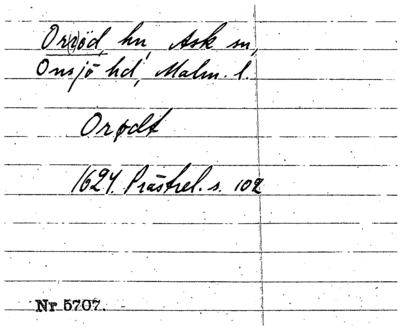 Or(r)öd, hn, Ask sn,
Onsjö hd, Malm. l.
Orødt
1624. Prästrel. s. 102
Nr 5707.